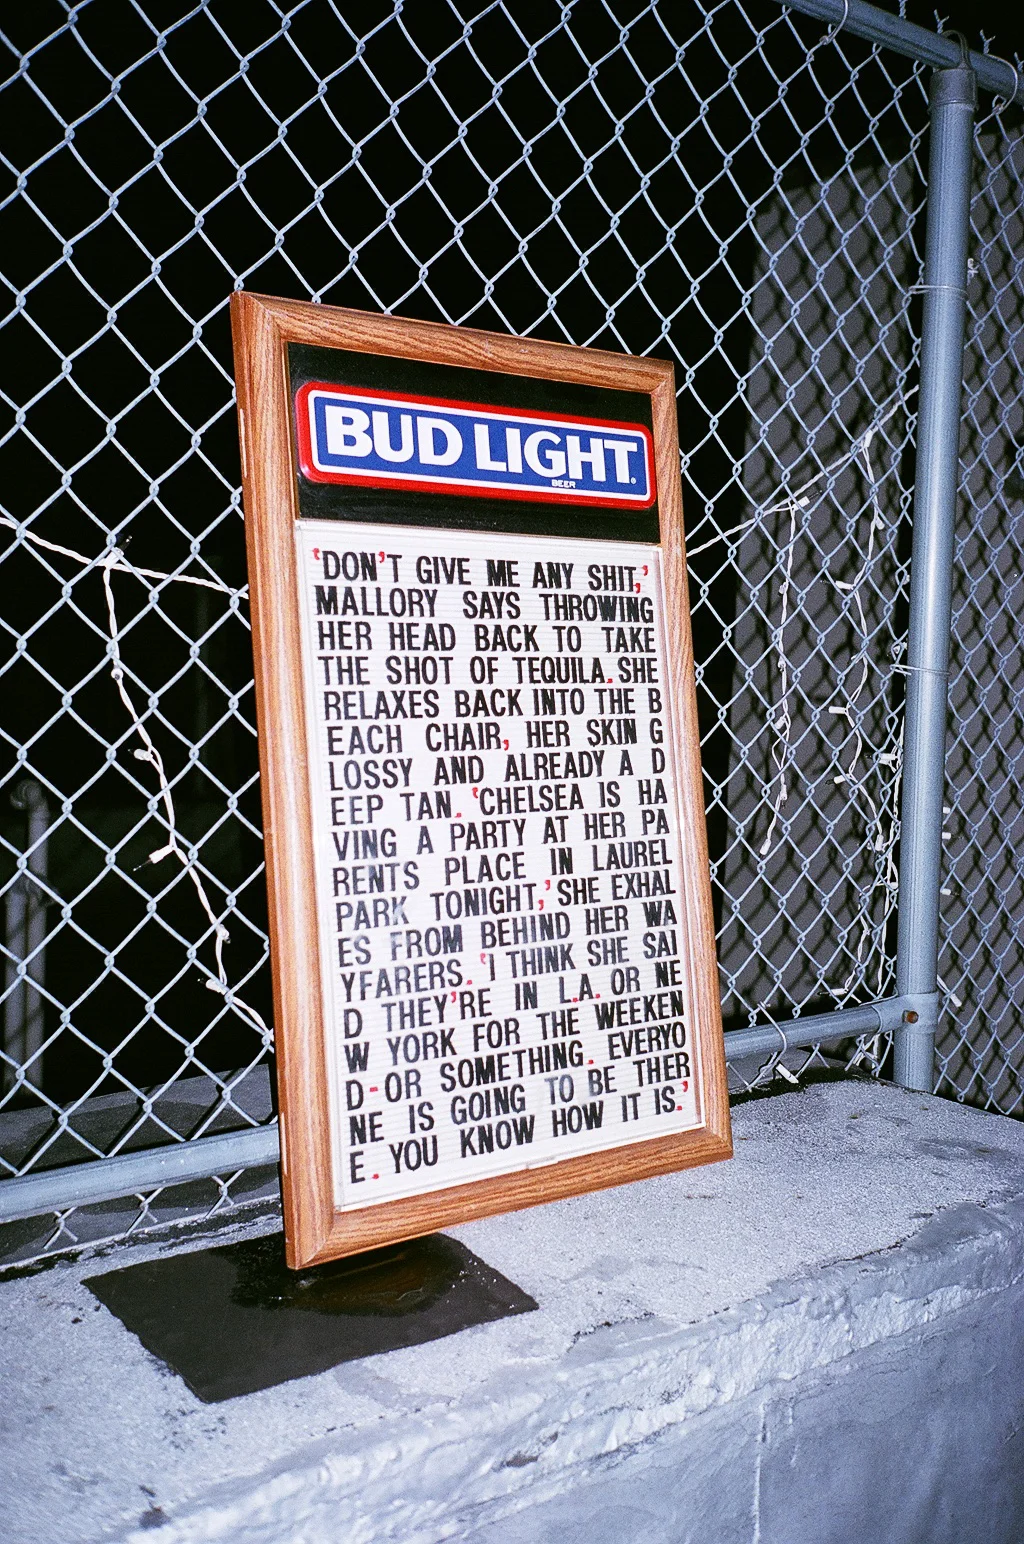 BUD LIGHT.
BEER
'DON'T GIVE ME ANY SHIT,'
MALLORY SAYS THROWING
HER HEAD BACK TO TAKE
THE SHOT OF TEQUILA. SHE
RELAXES BACK INTO THE B
EACH CHAIR, HER SKIN G
LOSSY AND ALREADY A D
EEP TAN. 'CHELSEA IS HA
VING A PARTY AT HER PA
RENTS PLACE IN LAUREL
PARK TONIGHT,' SHE EXHAL
ES FROM BEHIND HER WA
YFARERS. 'I THINK SHE SAI
D THEY'RE IN L.A. OR NE
W YORK FOR THE WEEKEN
D-OR SOMETHING. EVERYO
NE IS GOING TO BE THER
E. YOU KNOW HOW IT IS.'